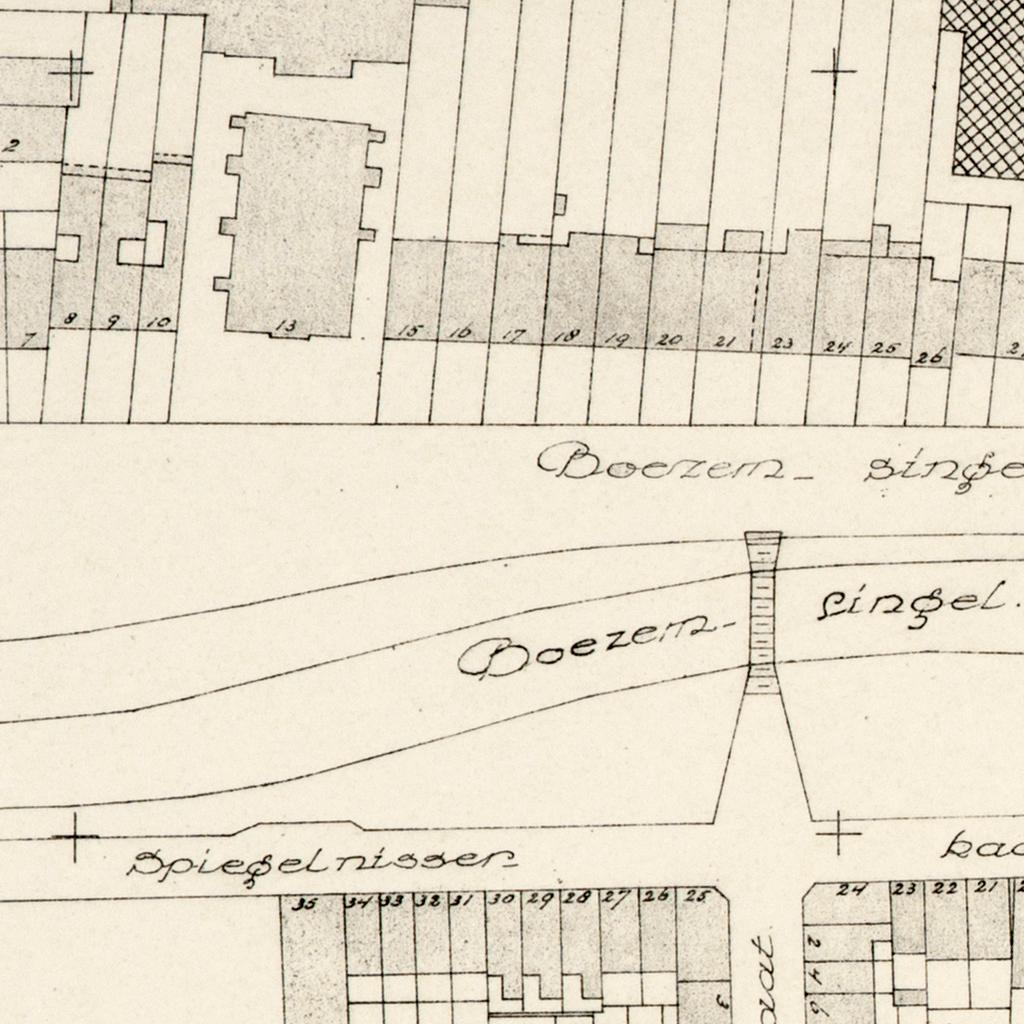 2
7 8 9 10 13 15 16 17 18 19 20 21 23 24 25 26
Boezem- singe
Boezem- singel.
Spiegelnisser- kad
35 34 33 32 31 30 29 28 27 26 25 24 23 22 21
2
4
6
3
aat